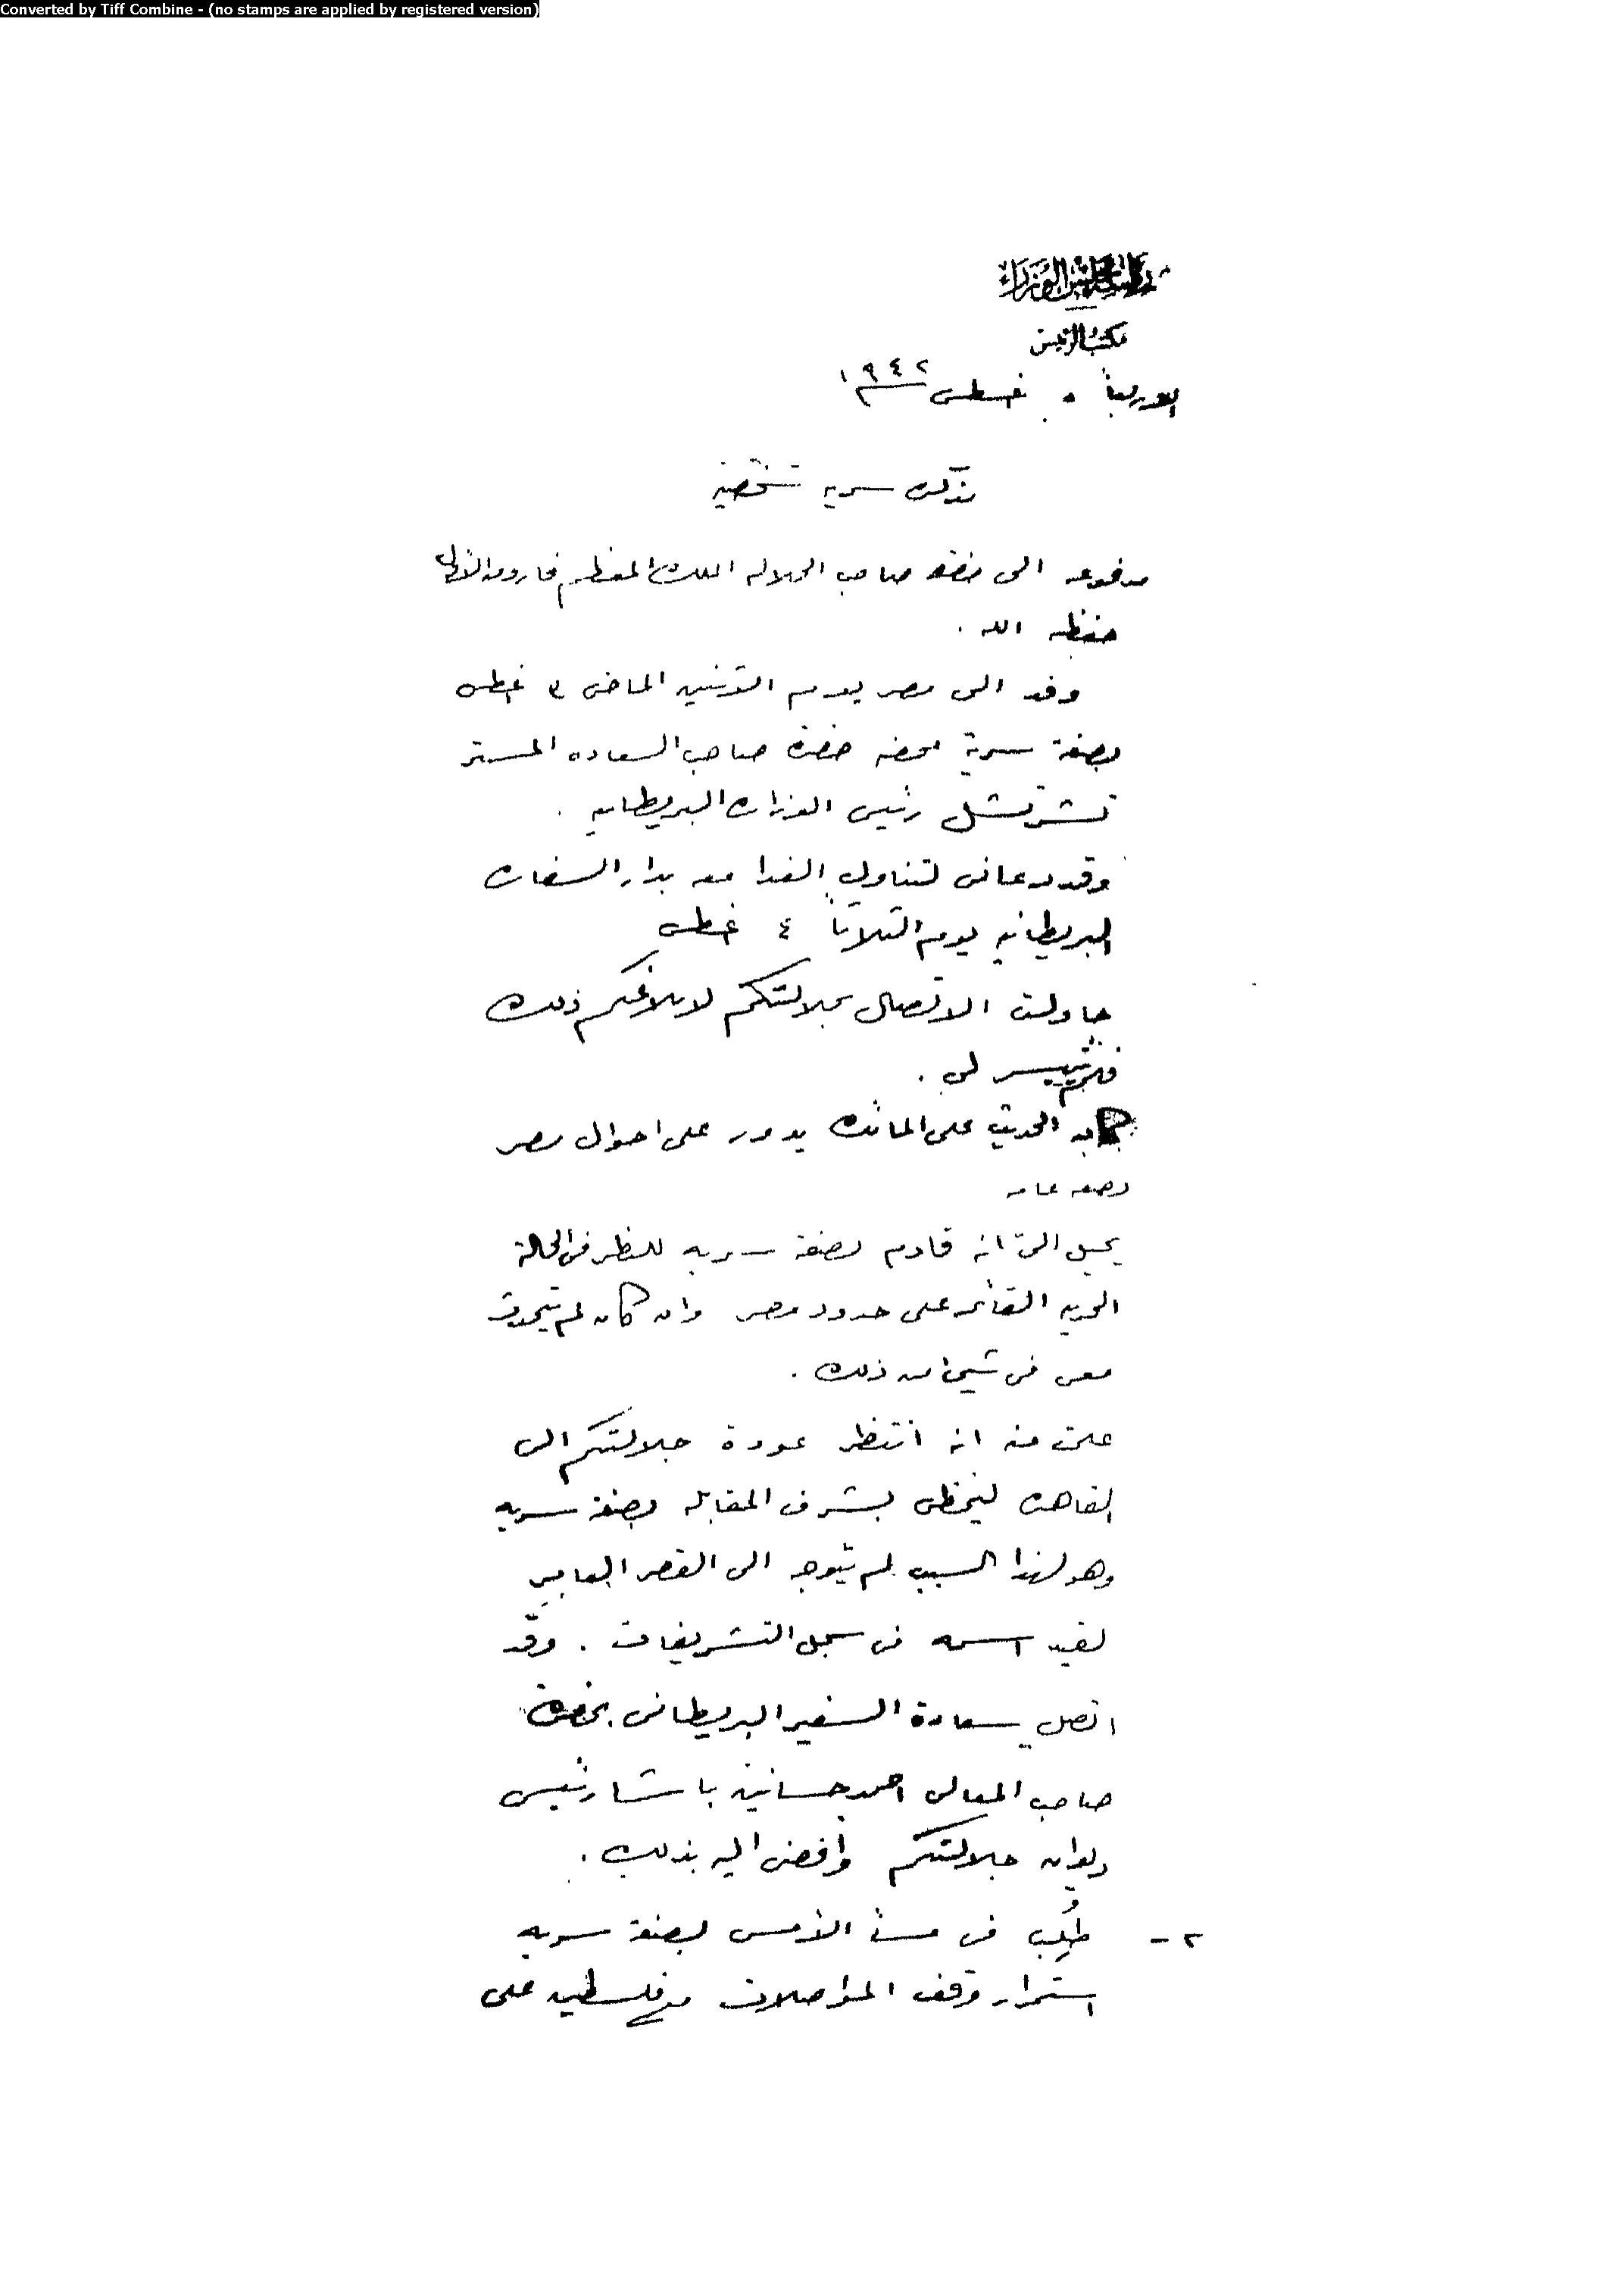 Converted by Tiff Combine - (no stamps are applied by registered version)
رئاسة مجلس الوزراء
مكتب الرئيس
الاربعا ٥ غسطس ١٩٤٢
مذكره سريه شخصيه
مدفوعه الى حضرة صاحب الجلاله الملك المعظم فاروق الاول
حفظه الله .
وفد الى مصر يوم الاثنين الماضى ٣ غسطس
بصفة سرية محضه حضرة صاحب السعاده المستر
تشرتشل رئيس الوزاره البريطانيه .
وقد دعانى لتناول الغدا معه بدار السفاره
البريطانيه يوم الثلاثا ٤ غسطس
حاولت الاتصال بجلالتكم لابلاغكم ذلك
فلم يتيسر لى .
كان الحديث على المائده يدور على احوال مصر
بصفه عامه
يخيل الىّ انه قادم بصفة سريه للنظر فى الحالة
الحربيه القائمه على حدود مصر وان كان لم يتحدث
معى فى شيئ من ذلك .
علمت منه انه انتظر عودة جلالتكم الى
القاهره ليحظى بشرف المقابله بصفة سريه
وهو لهذا السبب لم يتوجه الى القصر العامر
لقيد اسمه فى سجل التشريفات . وقد
اتصل سعادة السفير البريطانى بحضرة
صاحب المعالى احمد حسانين باشا رئيس
ديوان جلالتكم وأفضى اليه بذلك .
٢ - طُلِب فى مساء الأمس بصفة سريه
استمرار وقف المواصلات مع فلسطين على